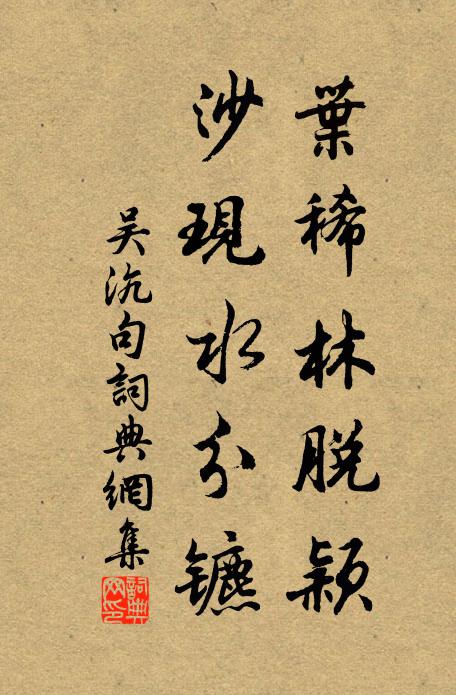 葉稀林脱穎
沙現水分鑣
吴沆句詞典網集
詞典网印